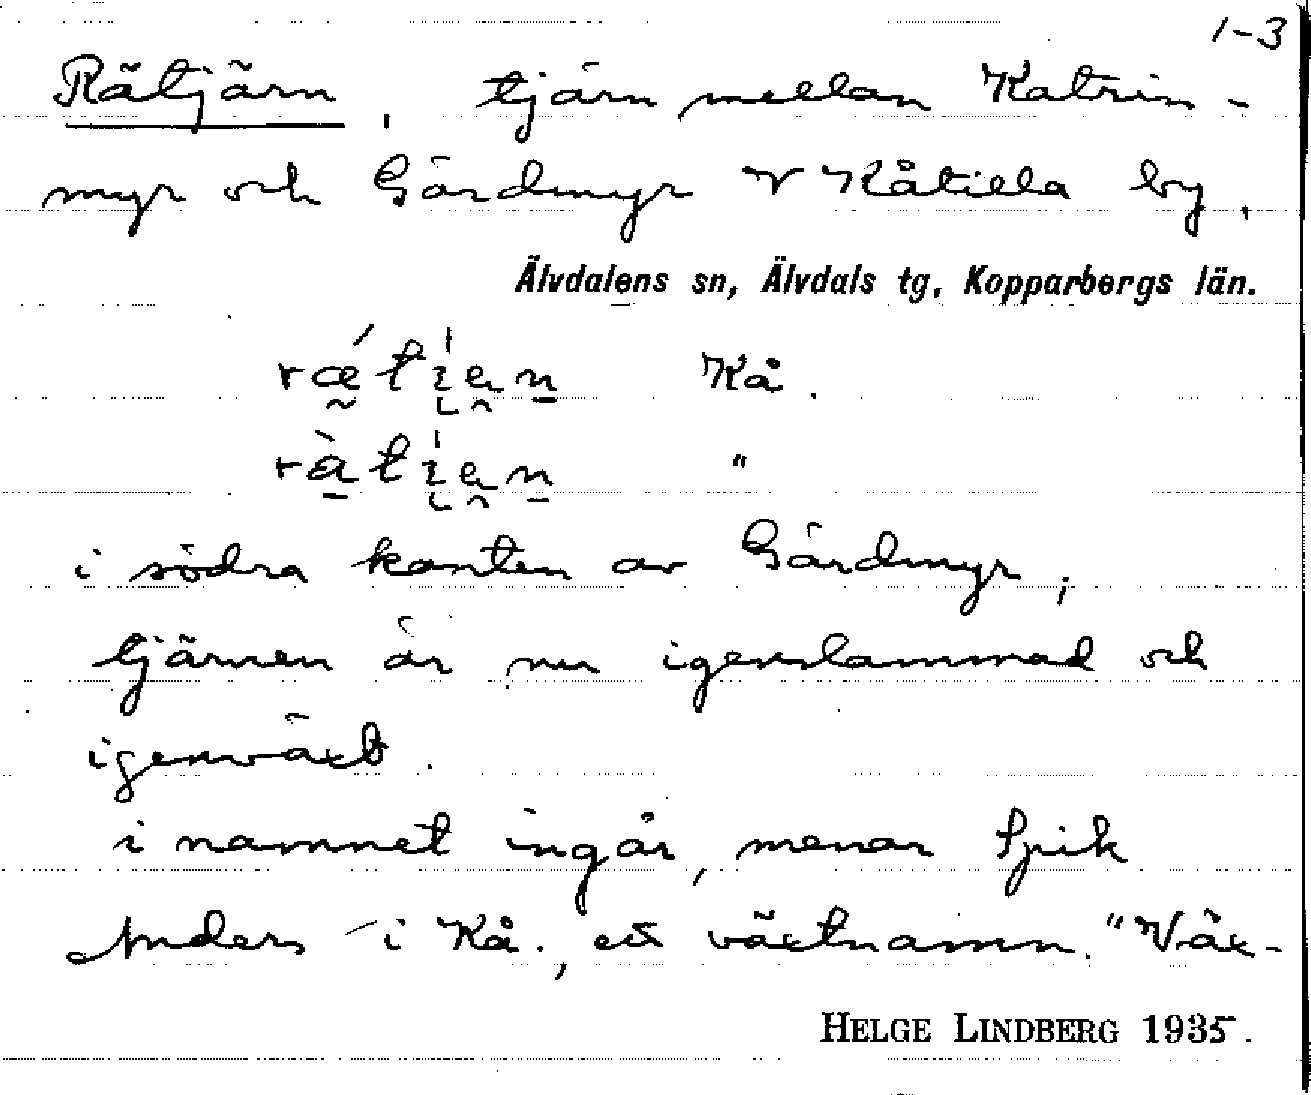 1-3
Rätjärn, tjärn mellan Katrin-
myr och Gärdmyr V Kåtilla by.
Älvdalens sn, Älvdals tg, Kopparbergs län.
Kå.
"
i södra kanten av Gärdmyr;
tjärnen är nu igenslammad och
igenväxt.
i namnet ingår, menar Spik
Anders i Kå., ett växtnamn. "Väx-
HELGE LINDBERG 1935.